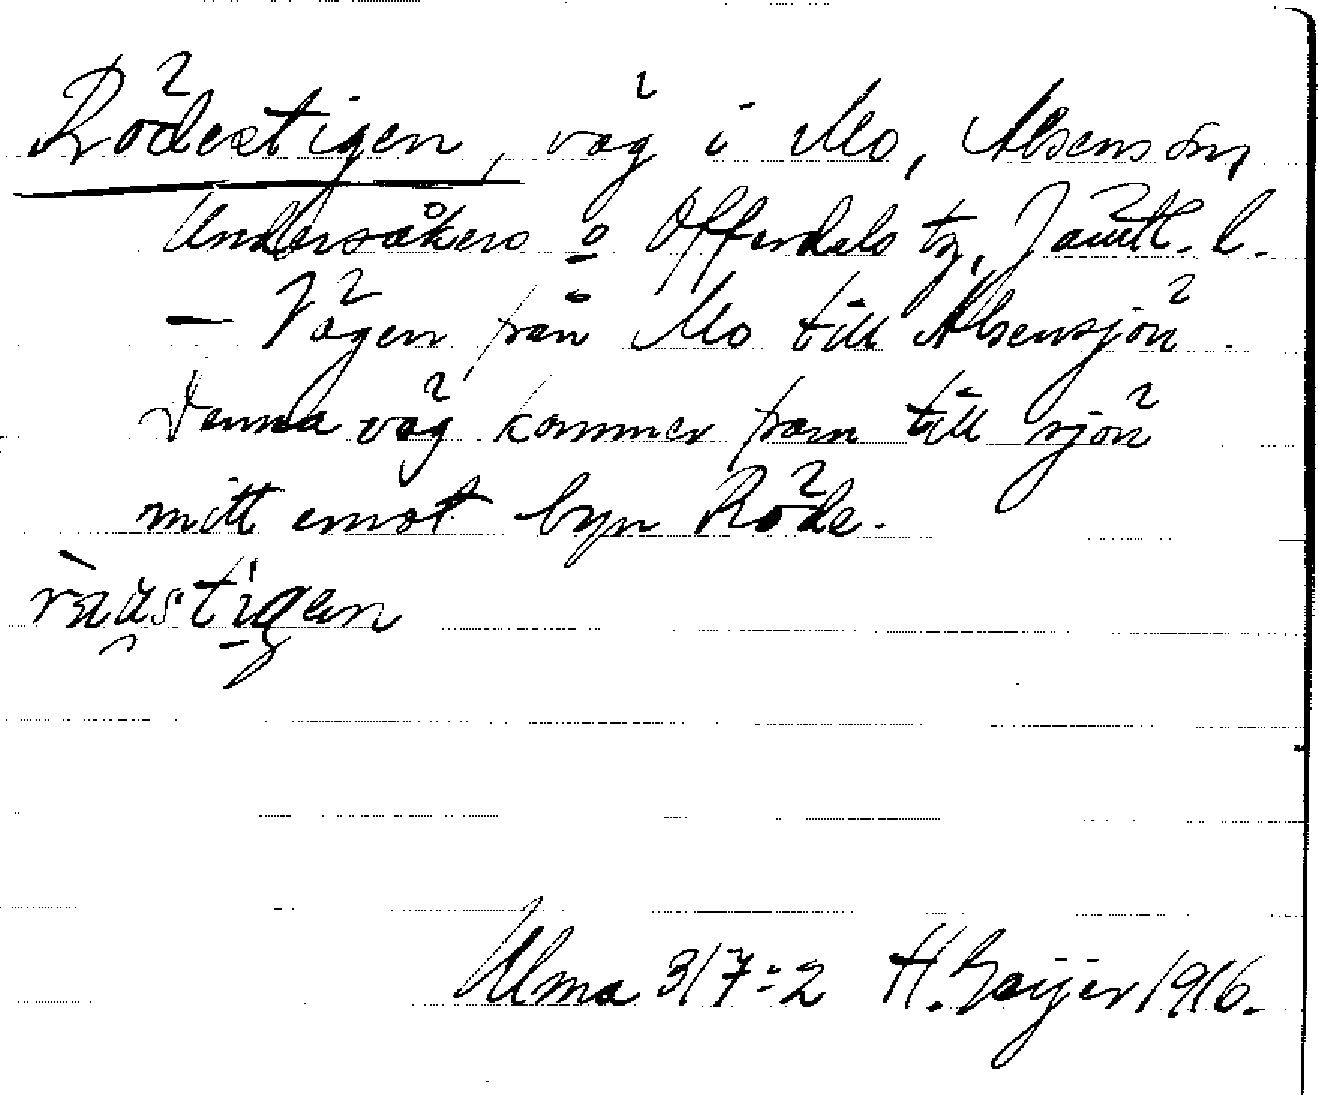 Rödestigen, väg i Mo, Alsens sn,
Undersåkers o Offerdals tg, Jämtl. l.
– Vägen från Mo till Alsensjön.
Denna väg kommer fram till sjön
mitt emot byn Röde.
Ulma 3/7:2 H. Geijer 1916.